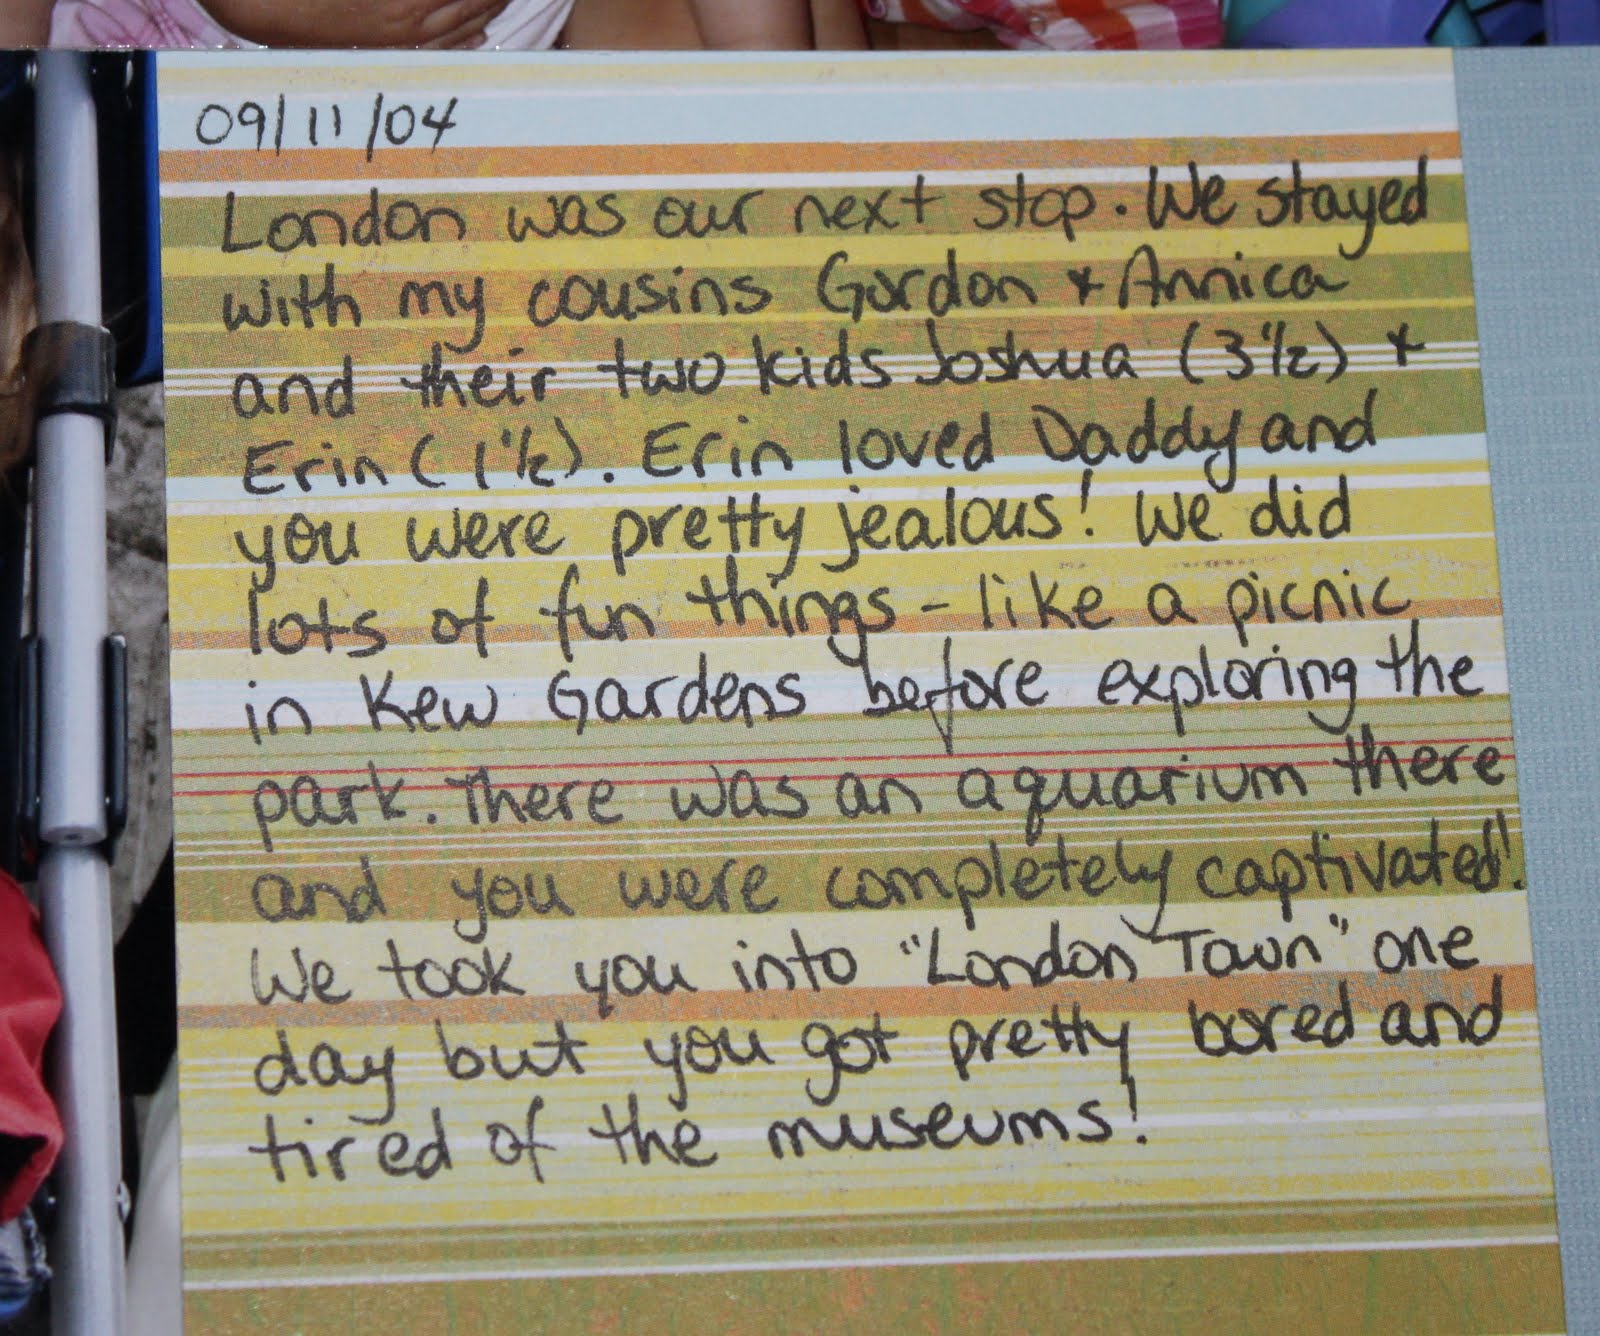 09/11/04
London was our next stop. We stayed
with my cousins Gordon & Annica
and their two kids Joshua (3½) &
Erin (1½). Erin loved Daddy and
you were pretty jealous! We did
lots of fun things - like a picnic
in Kew Gardens before exploring the
park. There was an aquarium there
and you were completely captivated!
We took you into "London Town" one
day but you got pretty bored and
tired of the museums!